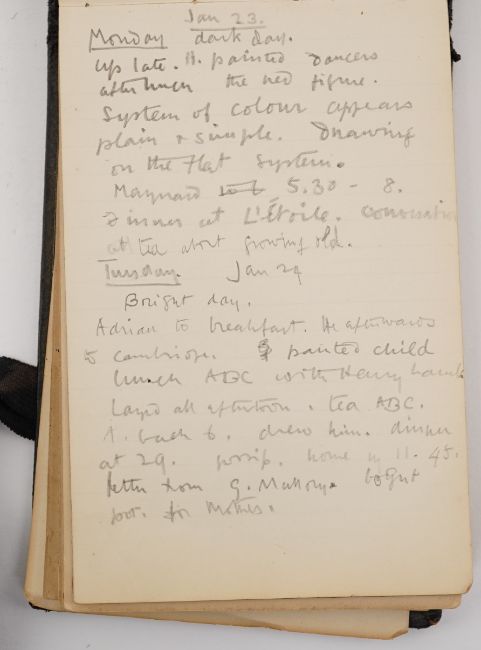 Jan 23.
Monday dark day.
up late. H. painted Dancers
after lunch the red figure.
System of colour appears
plain & simple. Drawing
on the flat system.
Maynard 5.30 - 8.
Dinner at L'Étoile. Conversation
at tea about growing old.
Tuesday. Jan 24
Bright day.
Adrian to breakfast. He afterwards
to Cambridge. I painted child
lunch ABC with Henry Lamb
Lazed all afternoon. tea ABC.
A. back 6. drew him. dinner
at 29. gossip. home 11.45.
letter from G. Mallory. bought
pot. for Mother.